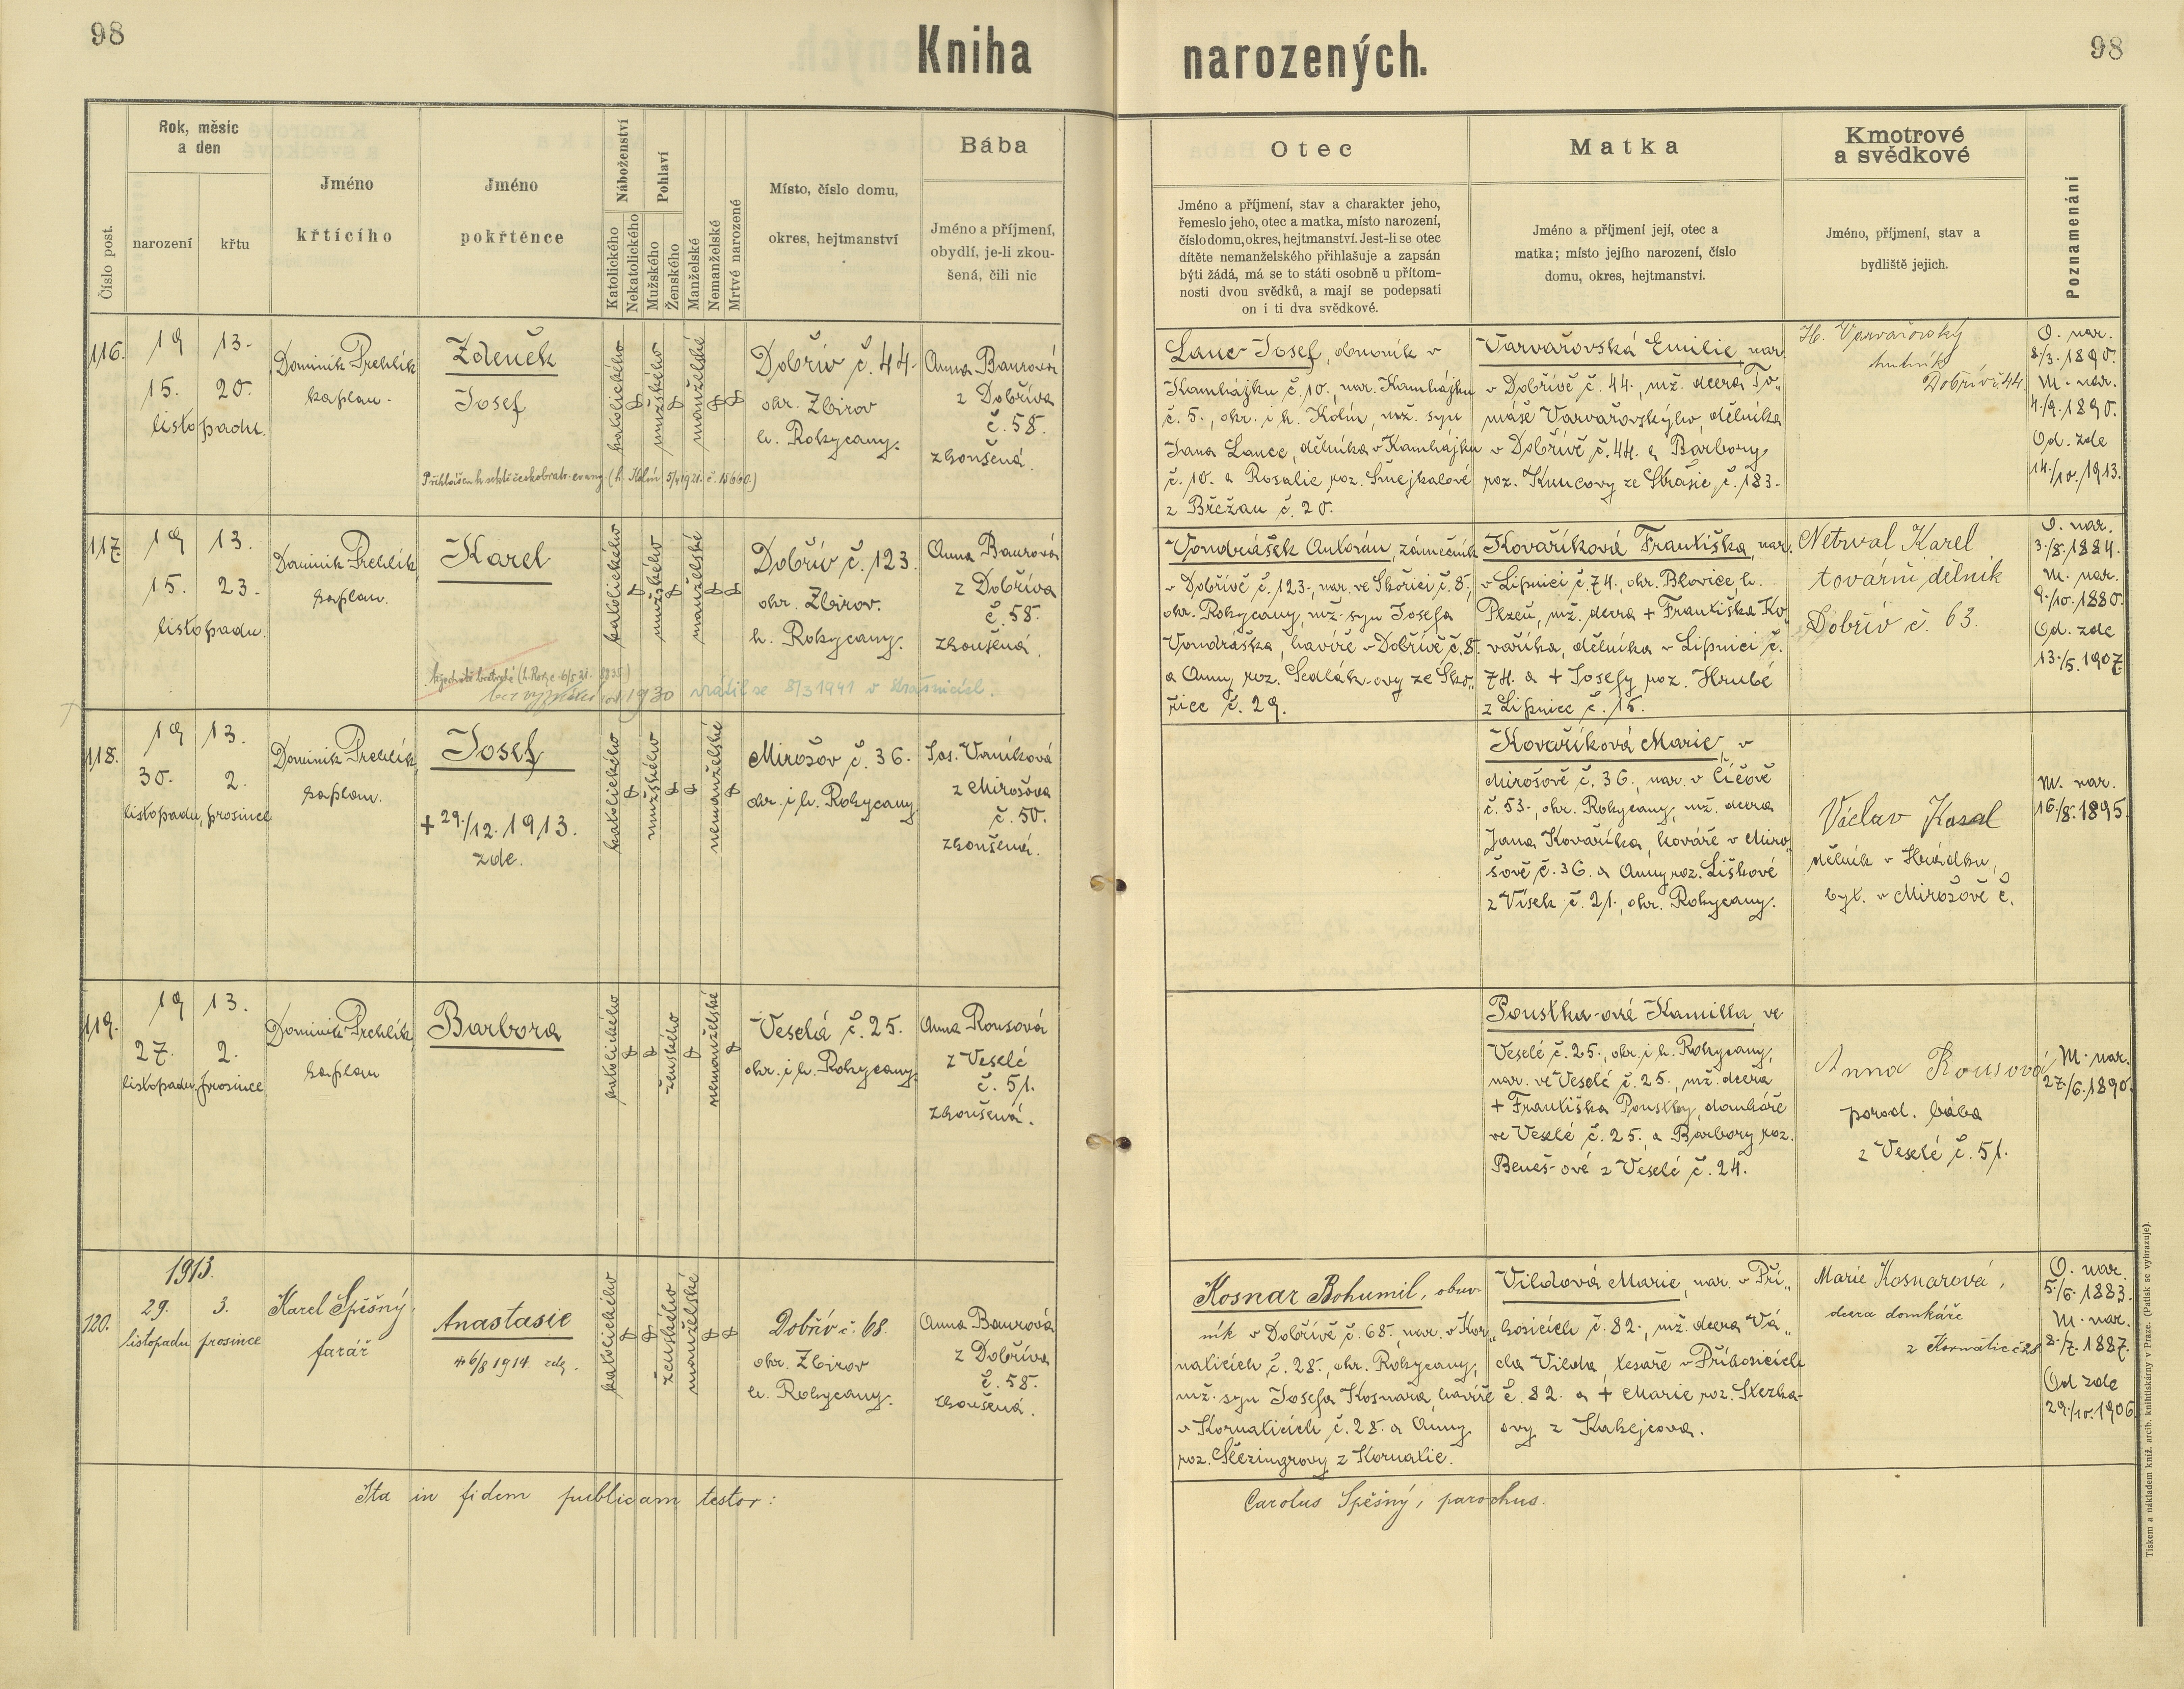 98
Kniha narozených.
98
Číslo post.
Rok, měsíc
a den
narození
křtu
Jméno
křtícího
Jméno
pokřtěnce
Náboženství
Katolického
Nekatolického
Pohlaví
Mužského
Ženského
Manželské
Nemanželské
Mrtvé narozené
Místo, číslo domu,
okres, hejtmanství
Bába
Jméno a příjmení,
obydlí, je-li zkou-
šená, čili nic
Otec
Jméno a příjmení, stav a charakter jeho,
řemeslo jeho, otec a matka, místo narození,
číslo domu, okres, hejtmanství. Jest-li se otec
dítěte nemanželského přihlašuje a zapsán
býti žádá, má se to státi osobně u přítom-
nosti dvou svědků, a mají se podepsati
on i ti dva svědkové.
Matka
Jméno a příjmení její, otec a
matka; místo jejího narození, číslo
domu, okres, hejtmanství.
Kmotrové
a svědkové
Jméno, příjmení, stav a
bydliště jejich.
Poznamenání
116.
19 13.
15. 20.
listopadu.
Dominik Prchlík
kaplan.
Zdeněk
Josef
Přihlášen k českobratr. evang. (h. Kolín 5/4 1921. č. 15660.)
katolického
mužského
manželské
Dobřív č. 44.
okr. Zbirov
h. Rokycany.
Anna Baurová
z Dobříva
č. 58.
zkoušená.
Lanc Josef, obuvník v
Kamhájku č. 10., nar. Kamhájku
č. 5., okr. i h. Kolín, mž. syn
Jana Lance, dělníka v Kamhájku
č. 10. a Rosalie roz. Smejkalové
z Břežan č. 20.
Varvařovská Emilie, nar.
v Dobřívě č. 44., mž. dcera To„
máše Varvařovského, dělníka
v Dobřívě č. 44. a Barbory
roz. Kuncovy ze Strašic, č. 183.
H. Varvařovský
hutník
Dobřív č. 44
O. nar.
8/3. 1890.
M. nar.
4./9. 1890.
Od. zde
14./10. 1913.
117.
19 13.
15. 23.
listopadu.
Dominik Prchlík,
kaplan.
Karel
bez vyznání od 1930 vrátil se 8/3 1941 v Strašicích.
katolického
mužského
manželské
Dobřív č. 123.
okr. Zbirov.
h. Rokycany.
Anna Baurová
z Dobříva
č. 58.
zkoušená.
Vondrášek Antonín, zámečník
v Dobřívě č. 123., nar. ve Skořici č. 8.,
okr. Rokycany, mž. syn Josefa
Vondráška, havíře v Dobřívě č. 8.
a Anny roz. Sedlák-ovy ze Sko„
řice č. 29.
Kovaříková Františka, nar.
v Lipnici č. 74., okr. Blovice, h.
Plzeň, mž. dcera + Františka Ko„
vaříka, dělníka v Lipnici č.
74. a + Josefy roz. Hrubé
z Lipnice č. 15.
Netrval Karel
tovární dělník
Dobřív č. 63.
O. nar.
3./8. 1884.
M. nar.
9./10. 1880.
Od. zde
13./5. 1907.
118.
19 13.
30. 2.
listopadu, prosince
Dominik Prchlík,
kaplan.
Josef
+ 29./12. 1913.
zde.
katolického
mužského
nemanželské
Mirošov č. 36.
okr. i h. Rokycany.
Jos. Vaníková
z Mirošova
č. 50.
zkoušená.
Kovaříková Marie, v
Mirošově č. 36., nar. v Číčově
č. 53., okr. Rokycany, mž. dcera
Jana Kovaříka, kováře v Miro„
šově č. 36. a Anny roz. Liškové
z Vísek č. 21., okr. Rokycany.
Václav Kasal
dělník v Hrádku,
byt. v Mirošově č.
M. nar.
16./8. 1895.
119.
19 13.
27. 2.
listopadu, prosince
Dominik Prchlík,
kaplan
Barbora
katolického
ženského
nemanželské
Veselá č. 25.
okr. i h. Rokycany.
Anna Rousová
z Veselé
č. 51.
zkoušená.
Poustka-ové Kamilla, ve
Veselé č. 25., okr. i h. Rokycany,
nar. ve Veselé č. 25., mž. dcera
+ Františka Poustky, domkáře
ve Veselé č. 25. a Barbory roz.
Beneš-ové z Veselé č. 24.
Anna Rousová
porod. bába
z Veselé č. 51.
M. nar.
27./6. 1890.
120.
1913.
29. 3.
listopadu prosince
Karel Spěšný,
farář
Anastasie
+ 6/8 1914. zde.
katolického
ženského
manželské
Dobřív č. 68.
okr. Zbirov
h. Rokycany.
Anna Baurová
z Dobříva
č. 58.
zkoušená.
Kosnar Bohumil, obuv-
ník v Dobřívě č. 68. nar. v Kor„
naticích č. 28., okr. Rokycany,
mž. syn Josefa Kosnara, havíře
v Kornaticích č. 28. a Anny
roz. z Kornatic.
Vildová Marie, nar. v Pří„
kosicích č. 82., mž. dcera Vá„
cla Vilda, tesaře v Příkosicích
č. 82. a + Marie roz. Stezka-
ovy z Kakejcova.
Marie Kosnarová,
dcera domkáře
z Kornatic č 28
O. nar.
5./6. 1883.
M. nar.
8./7. 1887.
Od zde
29./10. 1906.
Ita in fidem publicam testor:
Carolus Spěšný, parochus.
Tiskem a nákladem kníž. arcib. knihtiskárny v Praze. (Patisk se vyhrazuje).